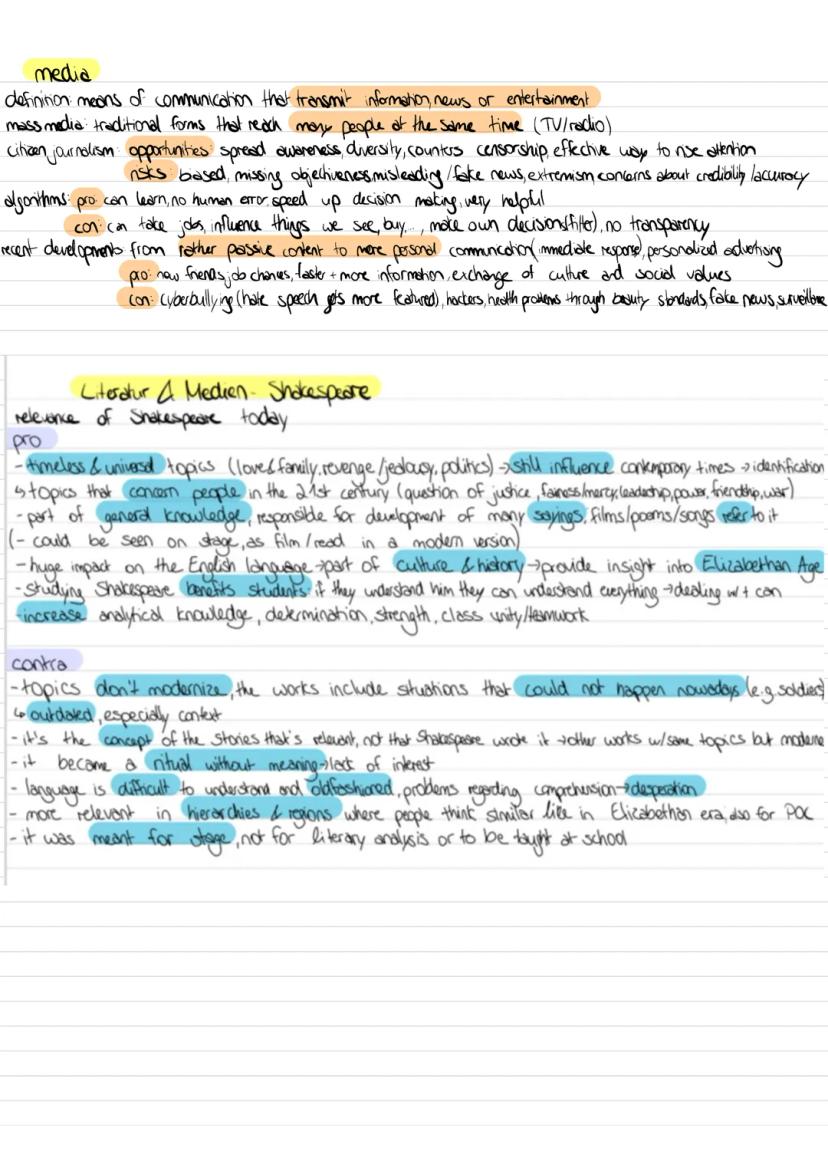 media
definition: means of communication that transmit information, news or entertainment
mass media: traditional forms that reach many people at the same time (TV/radio)
citizen journalism: opportunities: spread awareness, diversity, counters censorship, effective way to rise attention
risks: biased, missing objectiveness, misleading/fake news, extremism, concerns about credibility/accuracy
algorithms: pro: can learn, no human error, speed up decision making, very helpful
con: can take jobs, influence things we see, buy..., make own decisions (filter), no transparency
recent developments from rather passive content to more personal communication (immediate response), personalized advertising
pro: new friends, job chances, faster + more information, exchange of culture and social values
con: cyberbullying (hate speech gets more featured), hackers, health problems through beauty standards, fake news, surveillance
Literatur & Medien - Shakespeare
relevance of Shakespeare today
pro
- timeless & universal topics (love & family, revenge/jealousy, politics) → still influence contemporary times → identification
↳ topics that concern people in the 21st century (question of justice, fairness/mercy, leadership, power, friendship, war)
- part of general knowledge, responsible for development of many sayings, films/poems/songs refer to it
(- could be seen on stage, as film/read in a modern version)
- huge impact on the English language → part of culture & history → provide insight into Elizabethan Age
- studying Shakespeare benefits students: if they understand him they can understand everything → dealing w/ it can
increase analytical knowledge, determination, strength, class unity/teamwork
contra
- topics don't modernize, the works include situations that could not happen nowadays (e.g. soldiers)
↳ outdated, especially context
- it's the concept of the stories that's relevant, not that Shakespeare wrote it → other works w/ same topics but moderne
- it became a ritual without meaning → lack of interest
- language is difficult to understand and oldfashioned, problems regarding comprehension → desperation
- more relevant in hierarchies & regions where people think similar like in Elizabethan era, also for POC
- it was meant for stage, not for literary analysis or to be taught at school